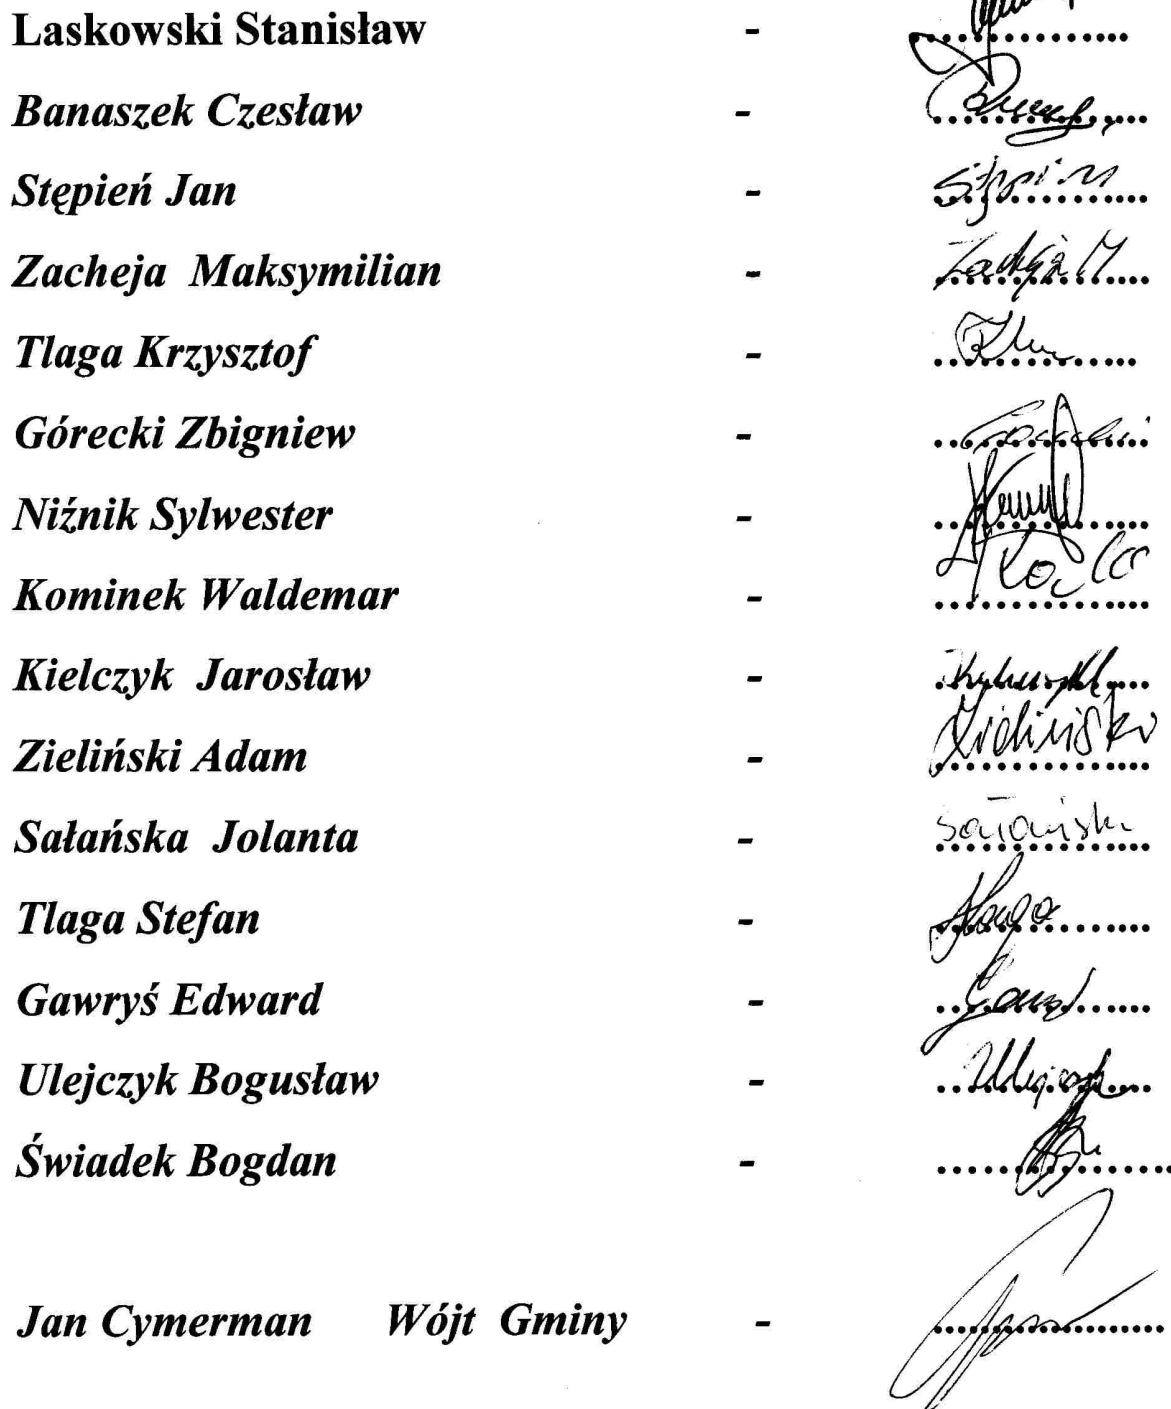 Laskowski Stanisław - ..............
Banaszek Czesław - ..............
Stępień Jan - Stępień
Zacheja Maksymilian - Zacheja M
Tlaga Krzysztof - ..............
Górecki Zbigniew - Górecki
Niźnik Sylwester - ..............
Kominek Waldemar - ..............
Kielczyk Jarosław - ..............
Zieliński Adam - Zieliński
Sałańska Jolanta - Sałańska
Tlaga Stefan - Tlaga
Gawryś Edward - ..............
Ulejczyk Bogusław - ..............
Świadek Bogdan - ..............
Jan Cymerman Wójt Gminy - ..............